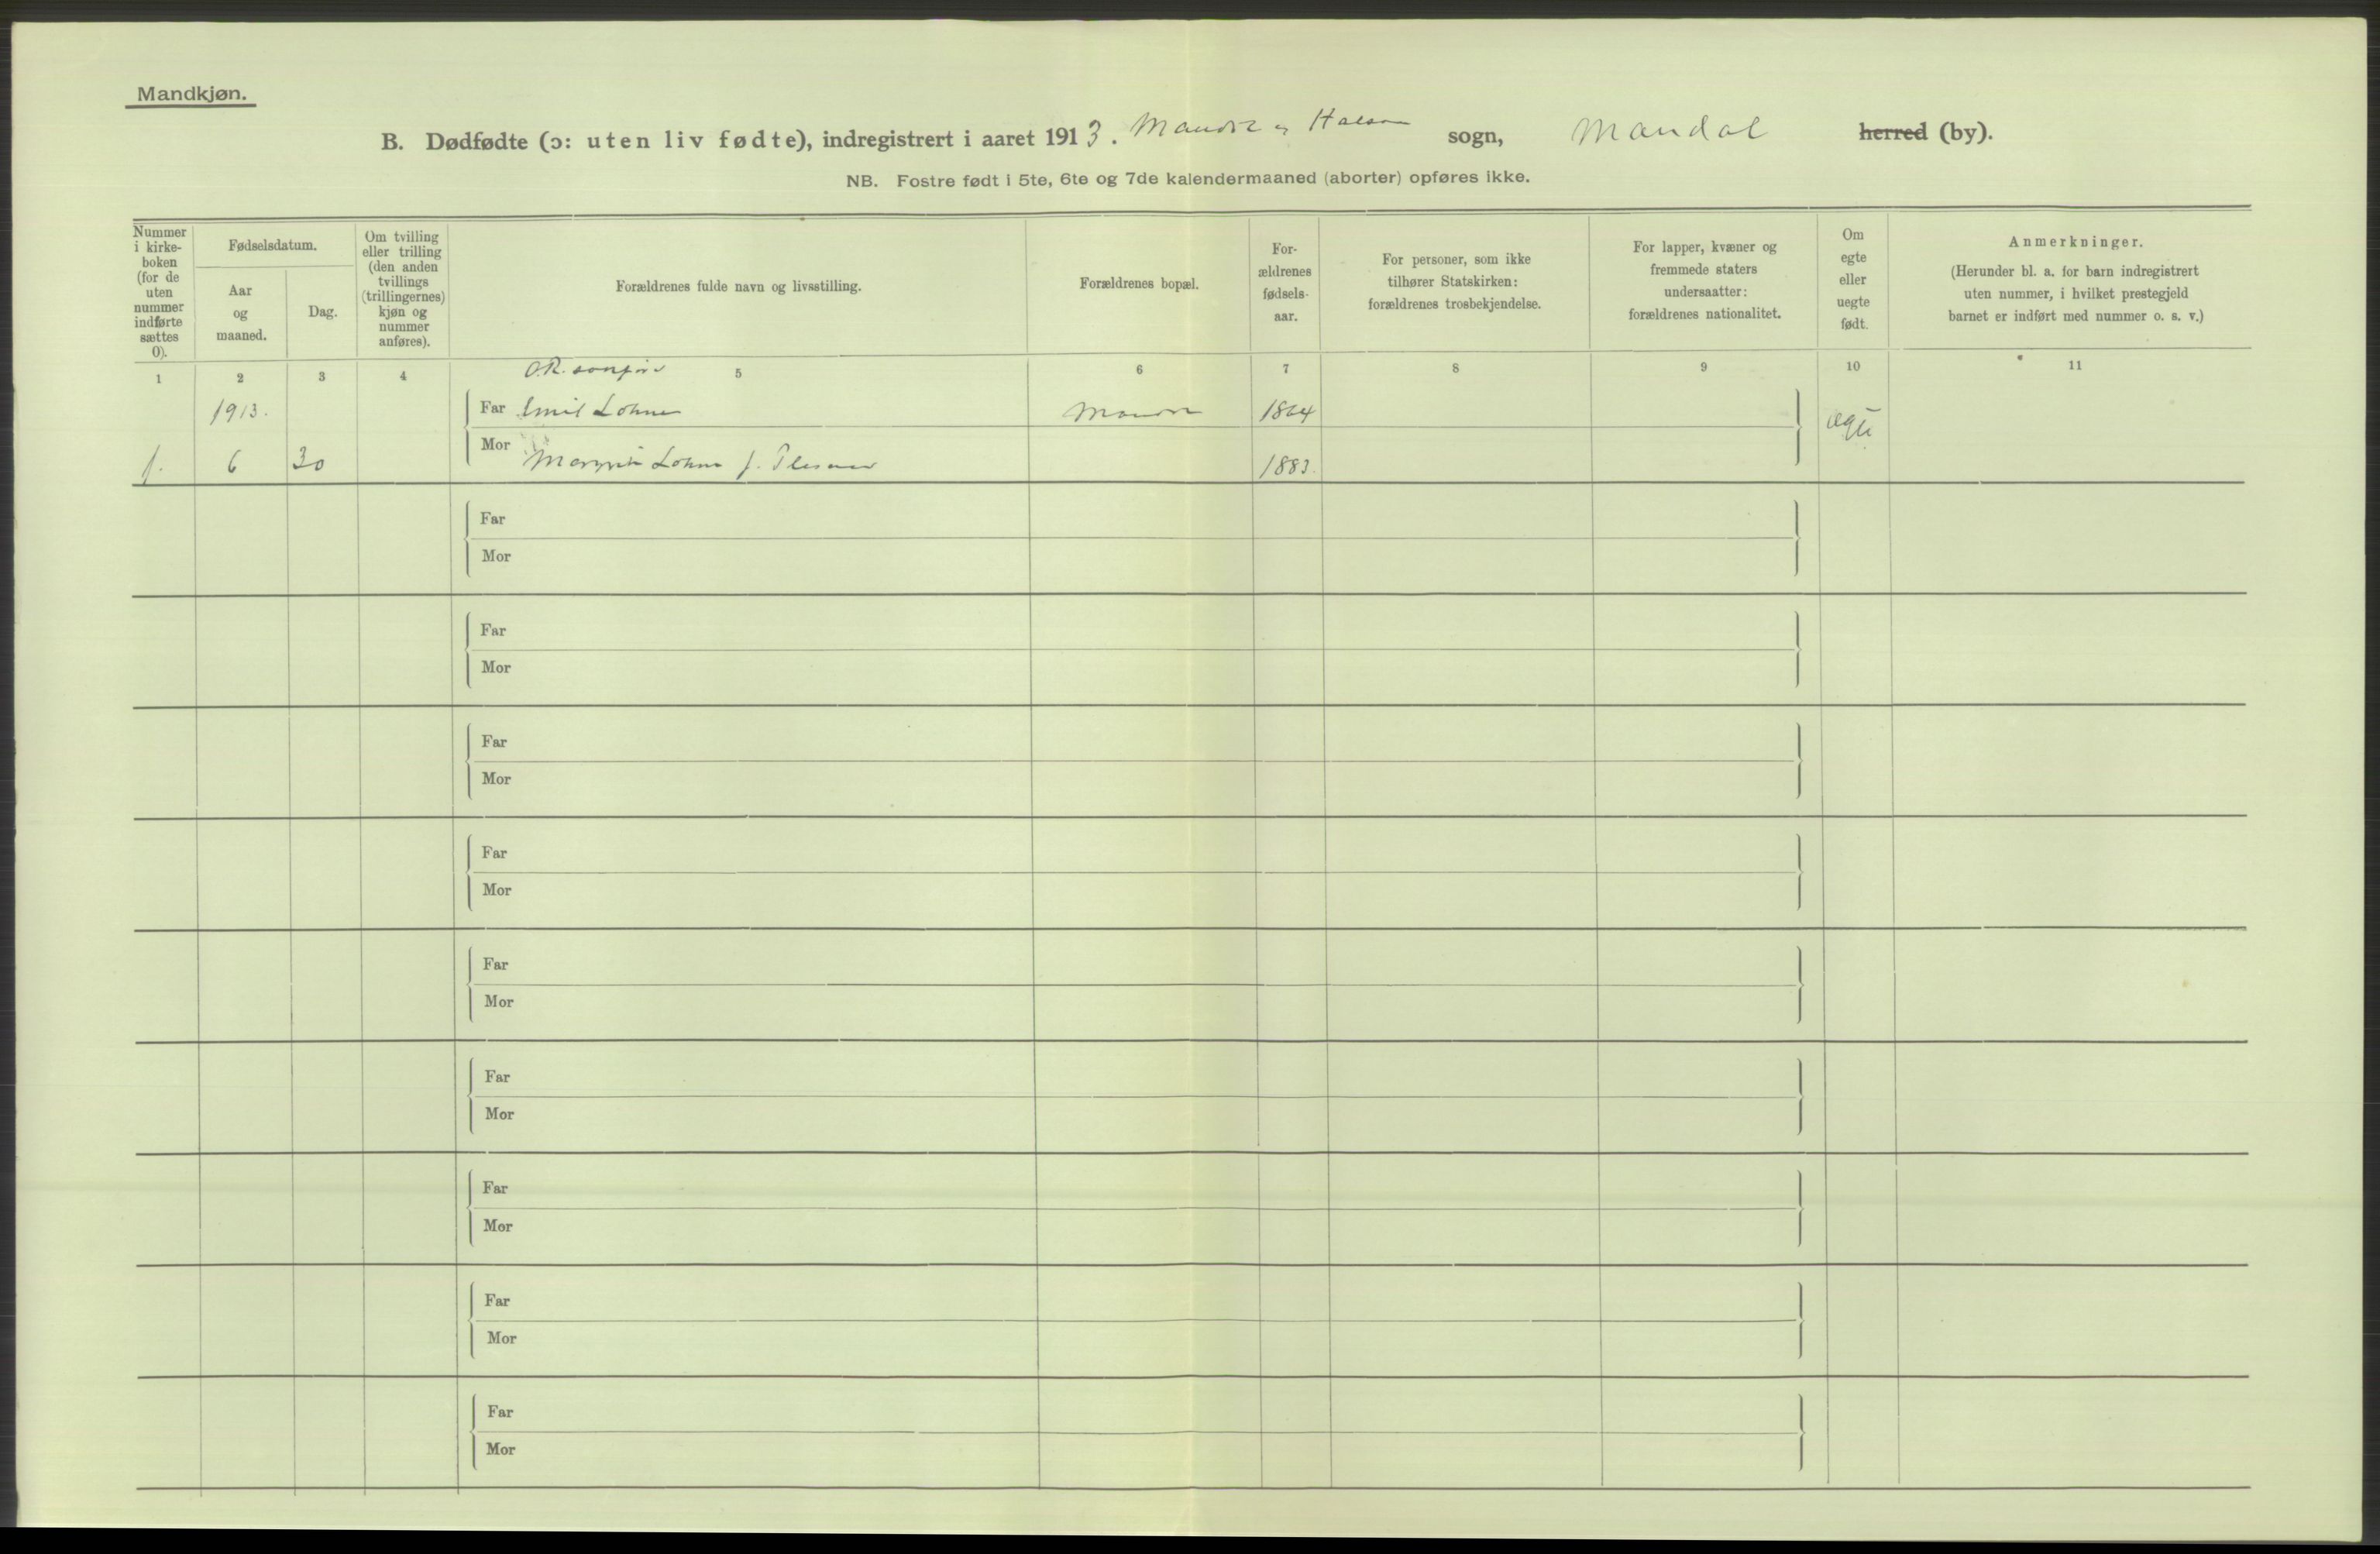 Mandkjøn.
B. Dødfødte (ɔ: uten liv fødte), indregistrert i aaret 1913. Mandal og Halsaa sogn, Mandal herred (by).
NB. Fostre født i 5te, 6te og 7de kalendermaaned (aborter) opføres ikke.
Nummer
i kirke-
boken
(for de
uten
nummer
indførte
sættes
0).
Fødselsdatum.
Aar
og
maaned.
Dag.
Om tvilling
eller trilling
(den anden
tvillings
(trillingernes)
kjøn og
nummer
anføres).
Forældrenes fulde navn og livsstilling.
Forældrenes bopæl.
For-
ældrenes
fødsels-
aar.
For personer, som ikke
tilhører Statskirken:
forældrenes trosbekjendelse.
For lapper, kvæner og
fremmede staters
undersaatter:
forældrenes nationalitet.
Om
egte
eller
uegte
født.
Anmerkninger.
(Herunder bl. a. for barn indregistrert
uten nummer, i hvilket prestegjeld
barnet er indført med nummer o. s. v.)
1 2 3 4 5 6 7 8 9 10 11
O.R. sakfører
1913. Far Emil Lohne Mandal 1864 egte
1. 6 30 Mor Margrethe Lohne f. 1883.
Far
Mor
Far
Mor
Far
Mor
Far
Mor
Far
Mor
Far
Mor
Far
Mor
Far
Mor
Far
Mor